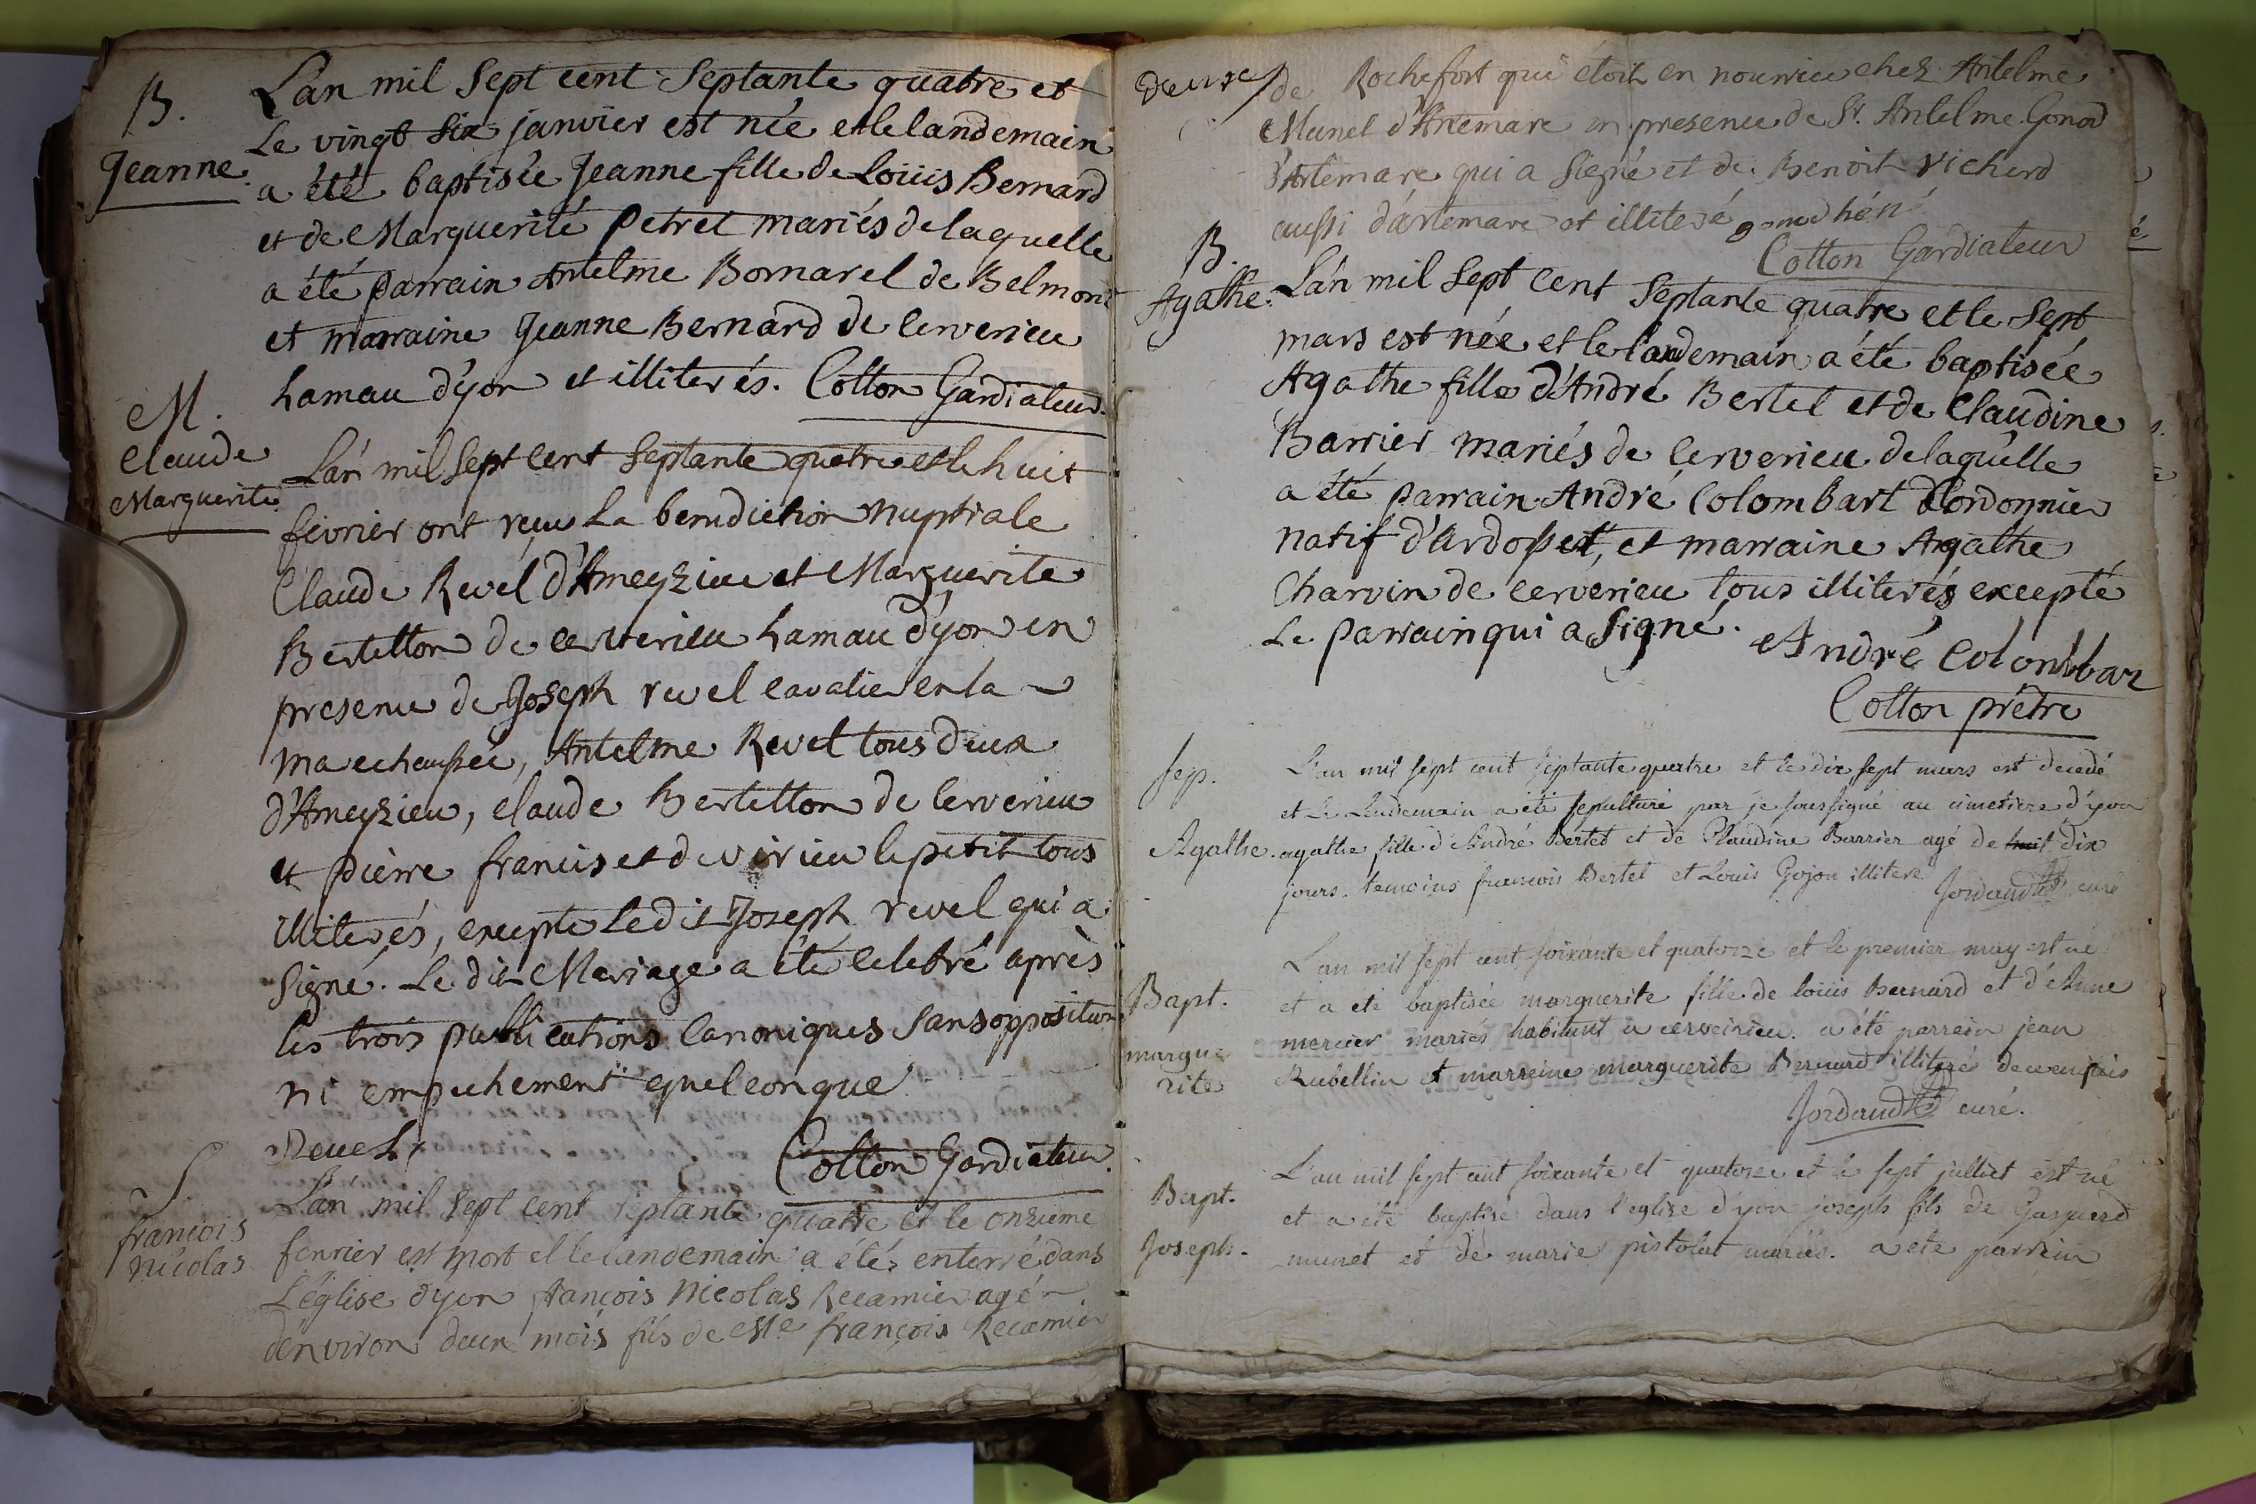 B.
Jeanne.
L'an mil sept cent septante quatre et
Le vingt six janvier est née et le landemain
a été baptisée Jeanne fille de Loüis Bernard
et de Marguerite Petret mariés de laquelle
a été parrain Antelme Bornarel de Belmont
et marraine Jeanne Bernard de Cerverieu
hamau d'yon et illiterés. Cotton Gardiateur.
M.
Claude
Marguerite.
L'an mil sept cent septante quatre et le huit
fevrier ont reçu la benediction nuptiale
Claude Revel d'Ameyzieu et Marguerite
Bertetton de cerverieu hamau d'yon en
presence de Joseph revel cavalier en la
marechaussée, Antelme Revel tous deux
d'Ameyzieu, claude Bertetton de Cerverieu
et pierre francis et de virieu le petit tous
illiterés, excepté ledit Joseph revel qui a
signé. Le dit Mariage a été celebré après
les trois publications canoniques sans opposition
ni empechement quelconque.
Revel
Cotton Gardiateur.
S.
françois
nicolas
L'an mil sept cent septante quatre et le onzieme
fevrier est mort et le landemain a étés enterré dans
L'église d'yon françois Nicolas Recamier agé
d'environ deux mois fils de Me françois Recamier
de Rochefort qui étoit en nourrice chez Antelme
Munet d'Artemare en presence de Sr. Antelme Gonod
d'Artemare qui a signé et de Benoit Richerd
aussi d'artemare et illiteré
Cotton Gardiateur
B.
Agathe.
L'an mil sept cent septante quatre et le sept
mars est née et le landemain a été baptisée
Agathe fille d'André Bertet et de Claudine
Barrier mariés de Cerverieu de laquelle
a été parrain André Colombart Cordonnier
natif d'Ardosset, et marraine Agathe
Charvin de cerverieu tous illiterés excepté
Le parrain qui a signé.
André Colombar
Cotton prêtre
sep.
Agathe.
L'an mil sept cent septante quatre et le dix sept mars est decedé
et le lendemain a été sepulturé par je soussigné au cimetiere d'yon
agathe fille d'André Bertet et de Claudine Barrier agé de huit dix
jours. temoins francois Bertet et Louis Gojon illiteré
Jordand curé
Bapt.
margue
rite
L'an mil sept cent soixante et quatorze et le premier may est né
et a été baptisée marguerite fille de loüis Bernard et d'Anne
mercier mariés habitant a cerveirieu. a été parrein jean
Rubellin et marreine marguerite Bernard illiterés
Jordand curé.
Bapt.
Joseph.
L'an mil sept cent soixante et quatorze et le sept julliet est né
et a été baptisé dans l'eglise d'yon joseph fils de Gaspard
munet et de marie pistolet mariés. a été parrein